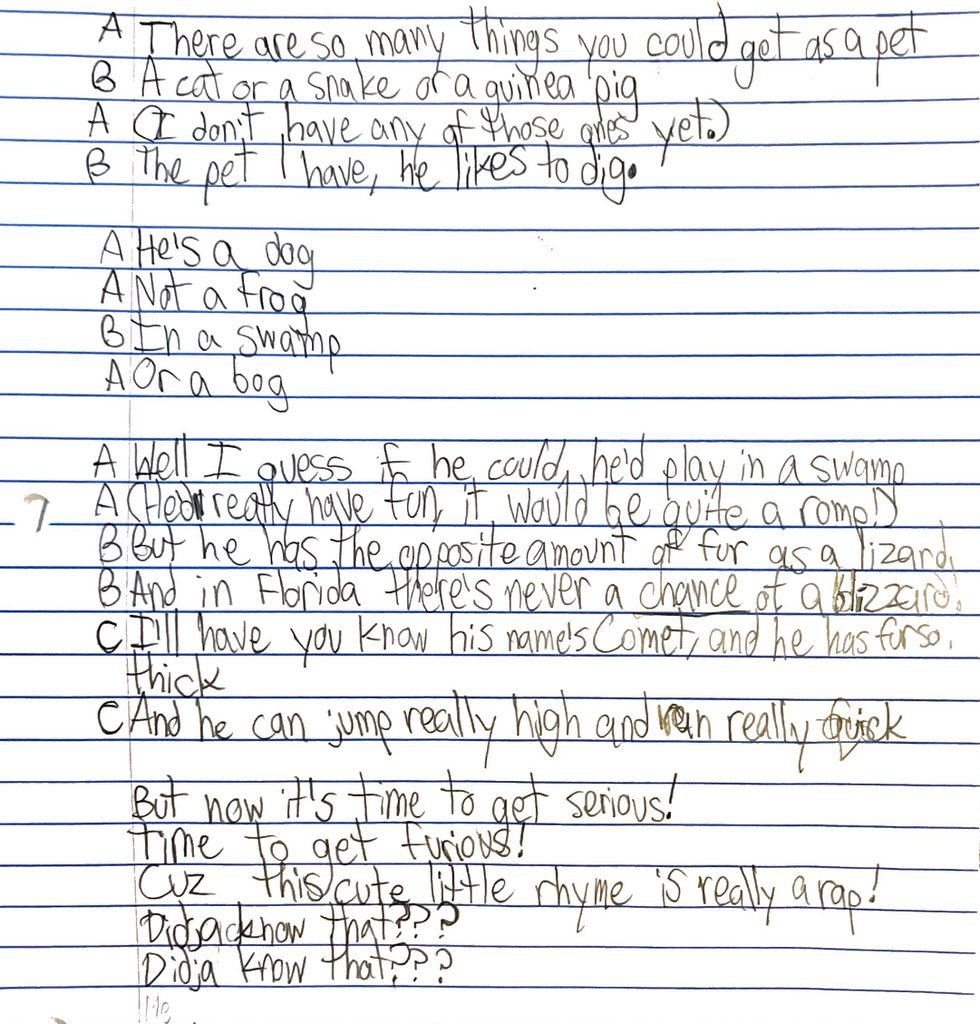 A There are so many things you could get as a pet
B A cat or a snake or a guinea pig
A (I don't have any of those ones yet.)
B The pet I have, he likes to dig.
A He's a dog
A Not a frog
B In a swamp
A Or a bog
A Well I guess if he could, he'd play in a swamp
A (He'd really have fun, it would be quite a romp!)
7
B But he has the opposite amount of fur as a lizard.
B And in Florida there's never a chance of a blizzard.
C I'll have you know his name's Comet, and he has fur so
thick
C And he can jump really high and run really quick
But now it's time to get serious!
Time to get furious!
Cuz this cute little rhyme is really a rap!
Didja know that???
Didja know that???